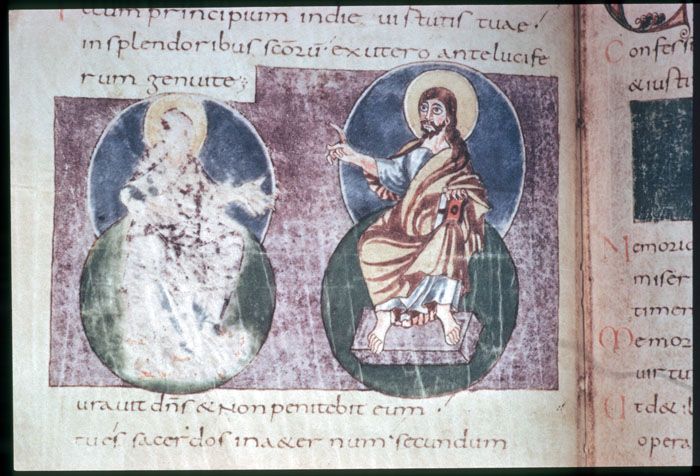 tecum principium indie uirtutis tuae
insplendoribus scōrū exutero antelucife
rum genuite
Iurauit dn̄s & non penitebit eum
tues sacerdos ina&ernum secundum
Confes
&iusti
Memoria
miser
timen
Memor
uirtu
Ut d&
opera